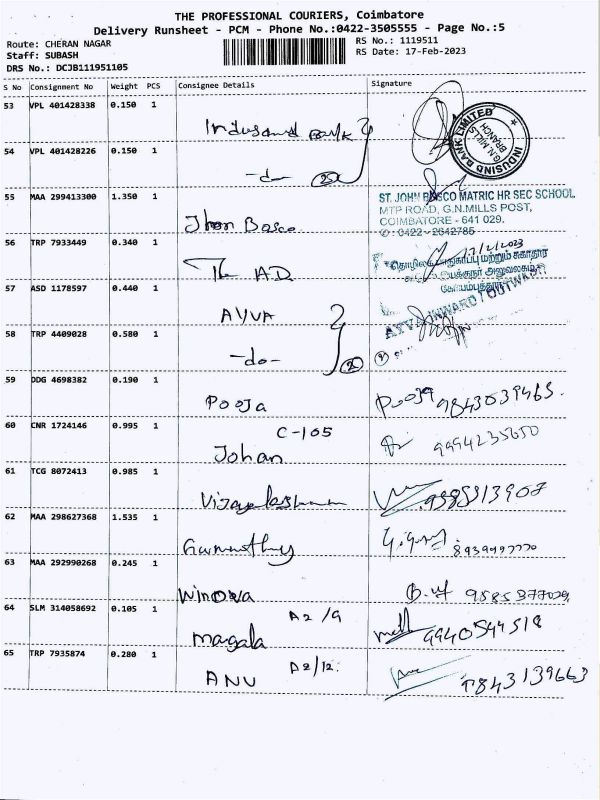 THE PROFESSIONAL COURIERS, Coimbatore
Delivery Runsheet - PCM - Phone No.:0422-3505555 - Page No.:5
Route: CHERAN NAGAR
RS No.: 1119511
Staff: SUBASH
RS Date: 17-Feb-2023
DRS No.: DCJB111951105
S No Consignment No Weight PCS Consignee Details Signature
53 VPL 401428338 0.150 1
Indusand Bank
INDUSIND BANK LIMITED
G.N. MILLS
BRANCH
54 VPL 401428226 0.150 1
-do- 2
55 MAA 299413300 1.350 1
Jhon Bosco
ST. JOHN BOSCO MATRIC HR SEC SCHOOL
MTP ROAD, G.N.MILLS POST,
COIMBATORE - 641 029.
✆ : 0422 - 2642785
56 TRP 7933449 0.340 1
The A.D.
17/2/2023
மற்றும் சுகாதார
அலுவலகம்
57 ASD 1178597 0.440 1
AYVA
INWARD / OUTWARD
58 TRP 4409028 0.580 1
-do- 2
59 DDG 4698382 0.190 1
Pooja
Pooja 9843039465.
60 CNR 1724146 0.995 1
C-105
Johan
9994235650
61 TCG 8072413 0.985 1
62 MAA 298627368 1.535 1
63 MAA 292990268 0.245 1
64 SLM 314058692 0.105 1
A2/9
Magala
9940544518
65 TRP 7935874 0.280 1
A2/12.
ANU
9843139663